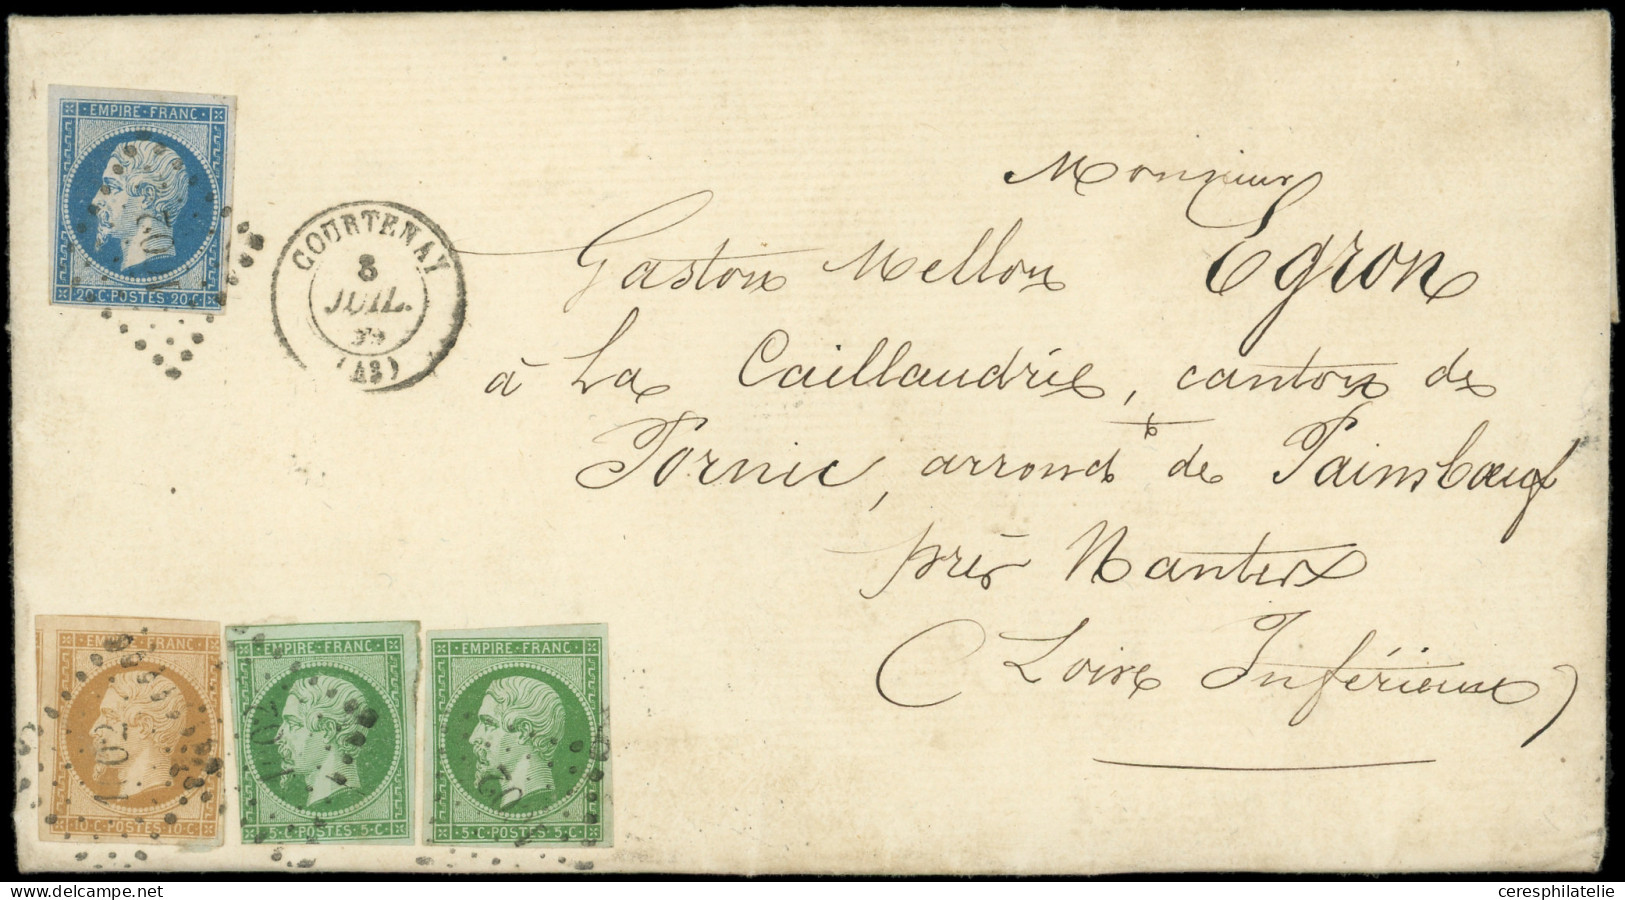 EMPIRE·FRANC·
20·C·POSTES 20·C·
COURTENAY
8
JUIL.
(43)
Monsieur
Gaston Mellon Egron
à La Caillaudrie, canton de
Pornic, arrond^t de Paimbœuf
près Nantes
(Loire Inférieure)
EMPIRE·FRANC·
10·C·POSTES 10·C·
EMPIRE·FRANC·
5·C·POSTES 5·C·
EMPIRE·FRANC·
5·C·POSTES 5·C·
delcampe.net
ceresphilatelie